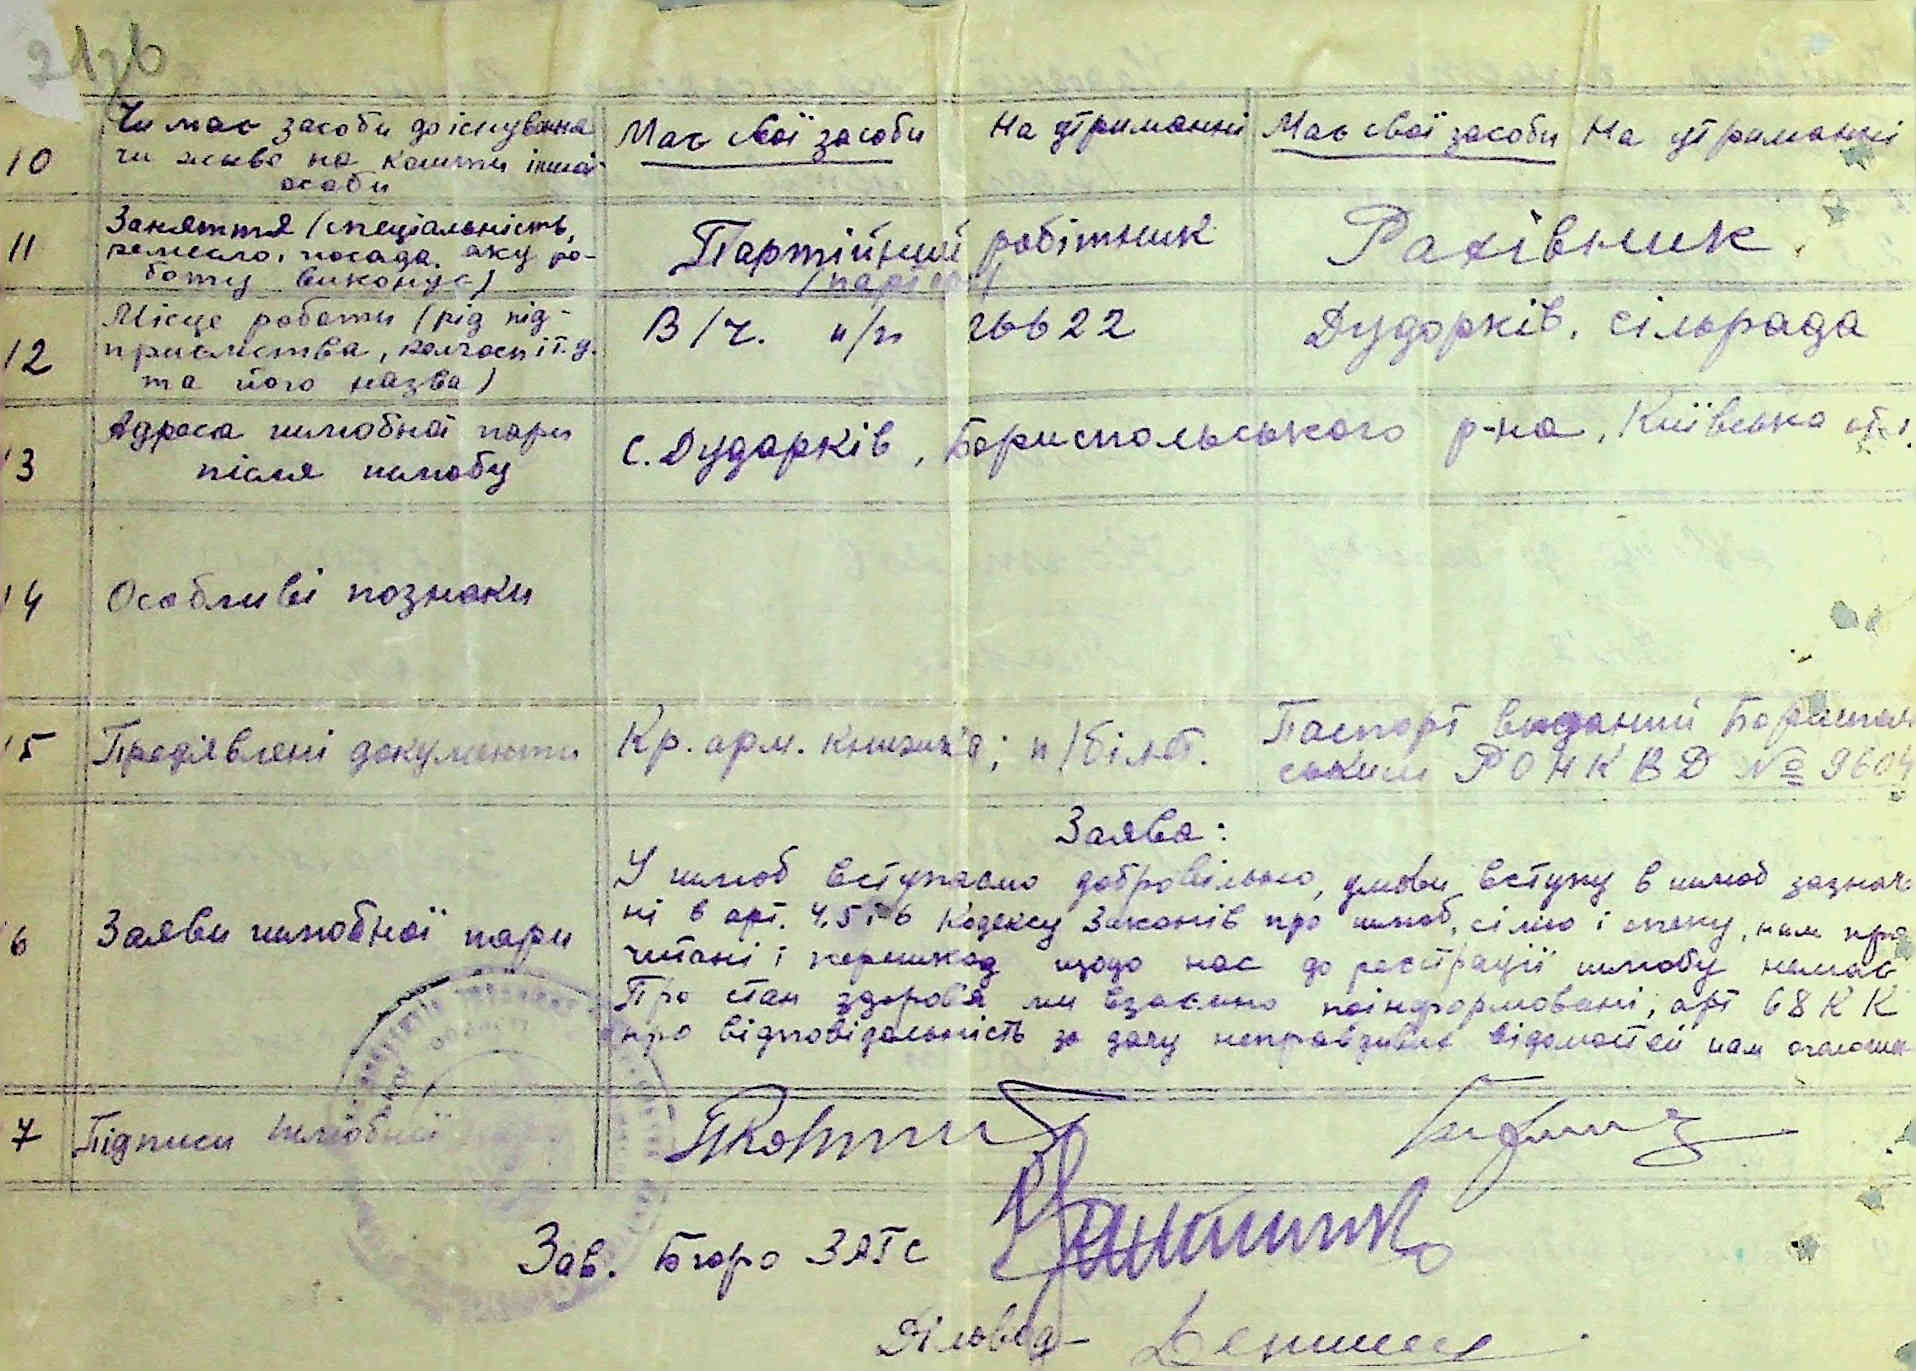 10
Чи має засоби до існування
чи живе на кошти іншої
особи
Має свої засоби На утриманні Має свої засоби На утриманні
11
Заняття (спеціальність,
ремесло, посада, яку ро-
боту виконує)
Партійний робітник
Рахівник
12
Місце роботи (рід під-
приємства, колгосп і т.д.
та його назва)
В/ч. п/п 26622
Дударків, сільрада
13
Адреса шлюбної пари
після шлюбу
с. Дударків, Бориспольського р-на, Київська обл.
14
Особливі познаки
15
Пред'явлені документи
Кр. арм. книжка; п/білет.
Паспорт виданий Бориспіль
ським РОНКВД № 9604
6
Заяви шлюбної пари
Заява:
У шлюб вступаємо добровільно, умови вступу в шлюб зазначе
ні в арт. 4, 5 і 6 Кодексу Законів про шлюб, сім'ю і опеку, нам про
читані і перешкод щодо нас до реєстрації шлюбу немає
Про стан здоров'я ми взаємно поінформовані, арт 68 КК
про відповідальність за дачу неправдивих відомостей нам оголошен
7
Підписи шлюбної
Зав. Бюро ЗАГС
Діловод